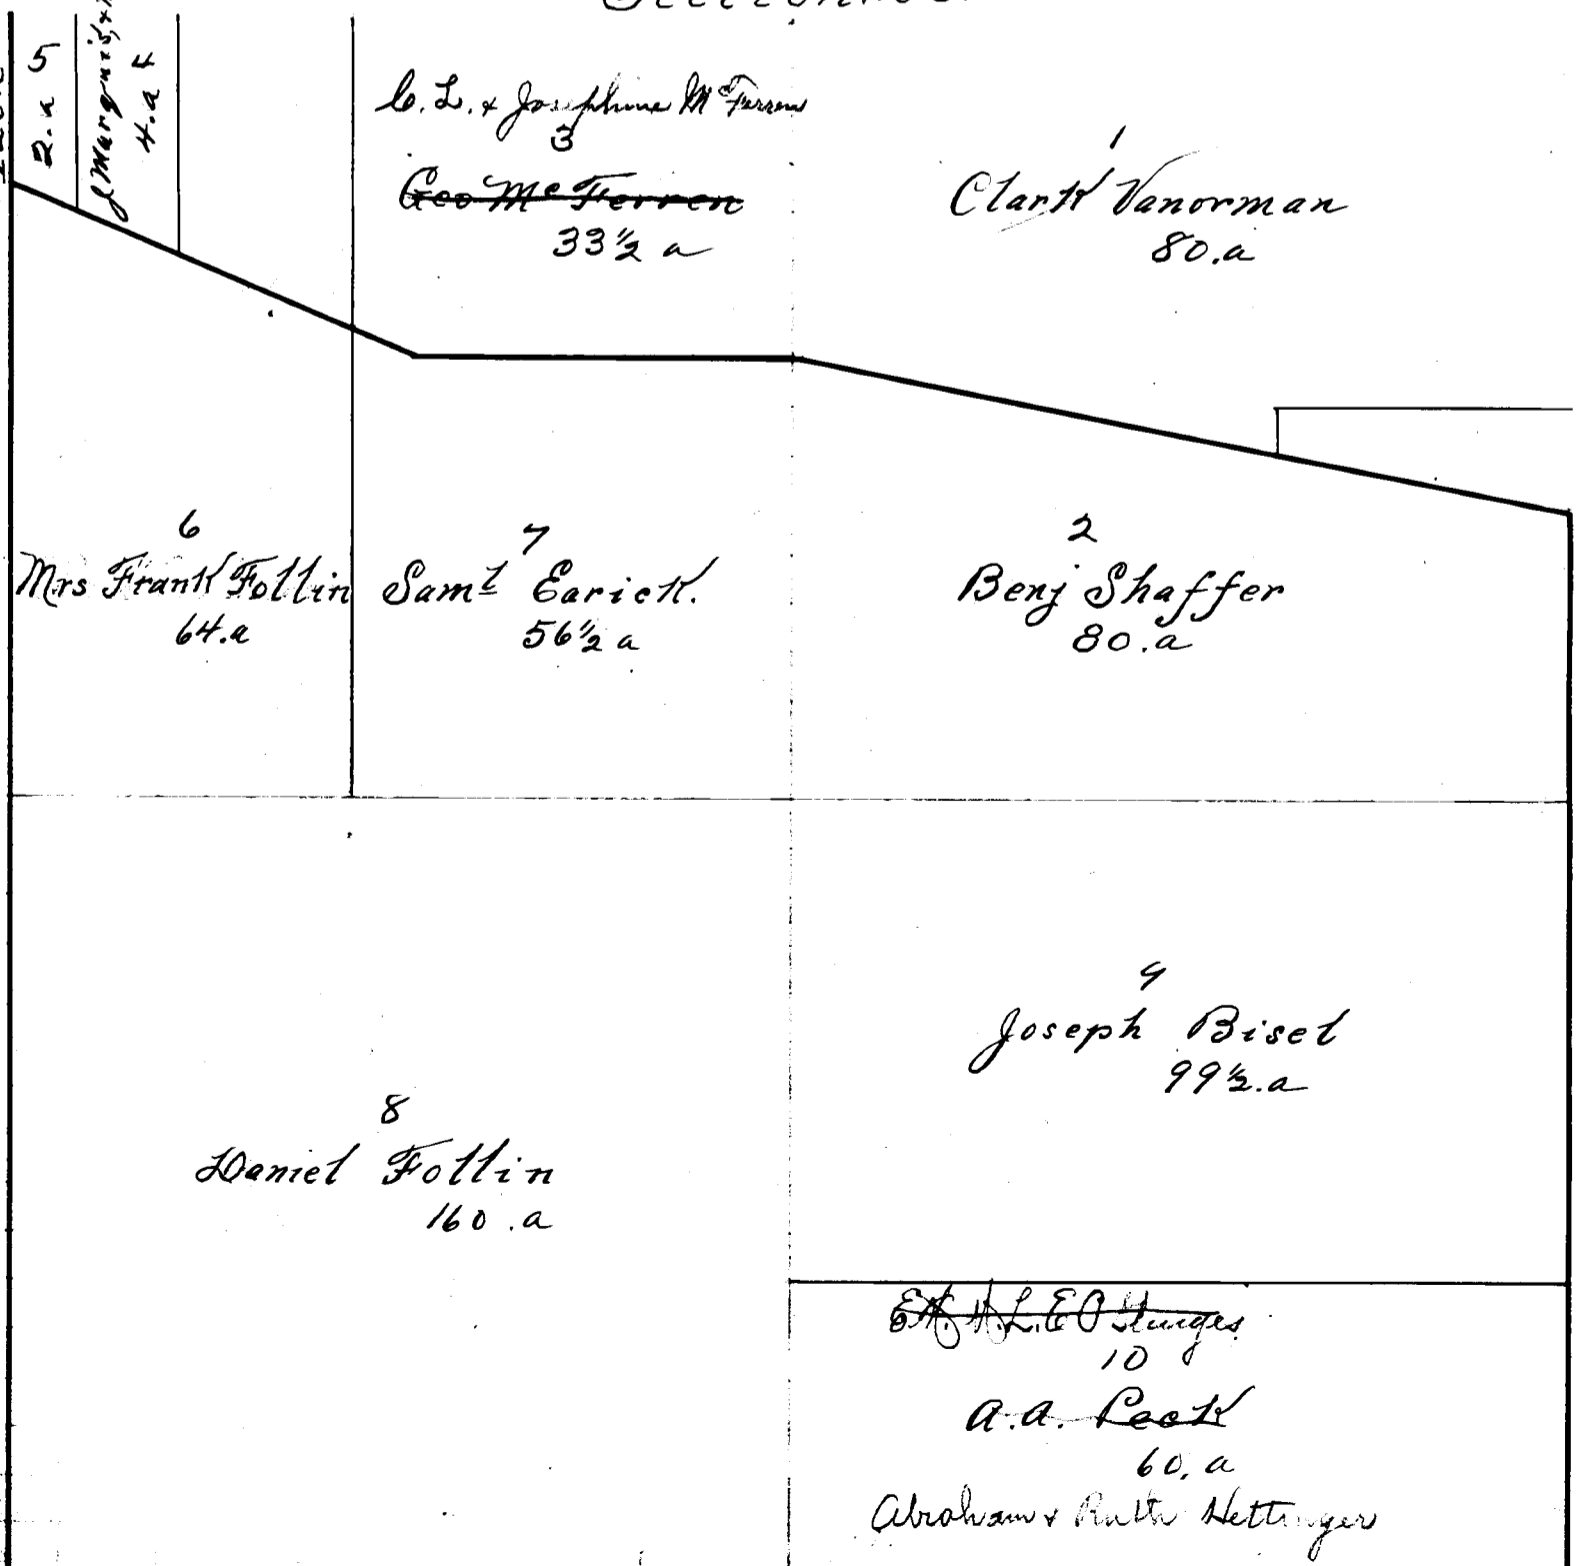 5
2.a
J Marquis
4
4.a
C. L. & Josephine McFerren
3
Geo McFerren
33½ a
1
Clark Vanorman
80.a
6
Mrs Frank Follin
64.a
7
Saml Earick.
56½ a
2
Benj Shaffer
80.a
9
Joseph Bisel
99½.a
8
Daniel Follin
160.a
Sturges
10
A.A. Peck
60.a
Abraham & Ruth Hettinger